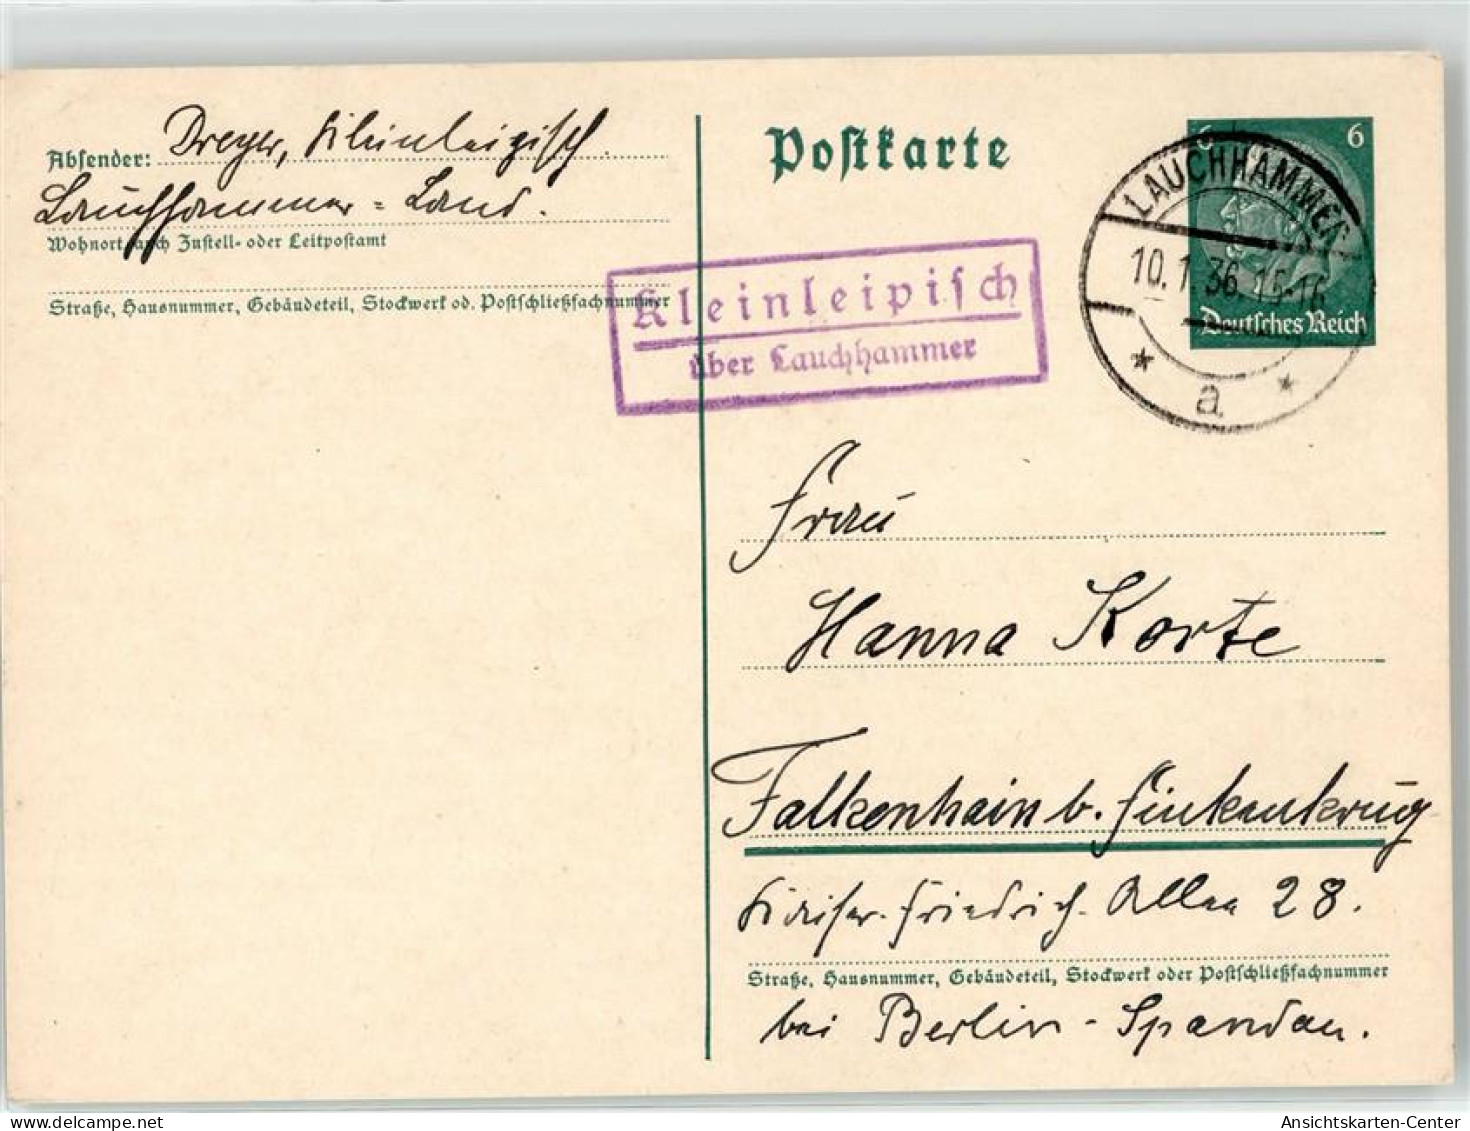 Absender: Dreyer, Kleinleipisch
Lauchhammer = Land.
Wohnort, auch Zustell- oder Leitpostamt
Straße, Hausnummer, Gebäudeteil, Stockwerk od. Postschließfachnummer
Postkarte
Kleinleipisch
über Lauchhammer
6 6
Deutsches Reich
LAUCHHAMMER
10.1.36.15-16
* a *
Frau
Hanna Korte
Falkenhain b. Finkenkrug
Kaiser-Friedrich-Allee 28.
Straße, Hausnummer, Gebäudeteil, Stockwerk oder Postschließfachnummer
bei Berlin-Spandau.
Ansichtskarten-Center